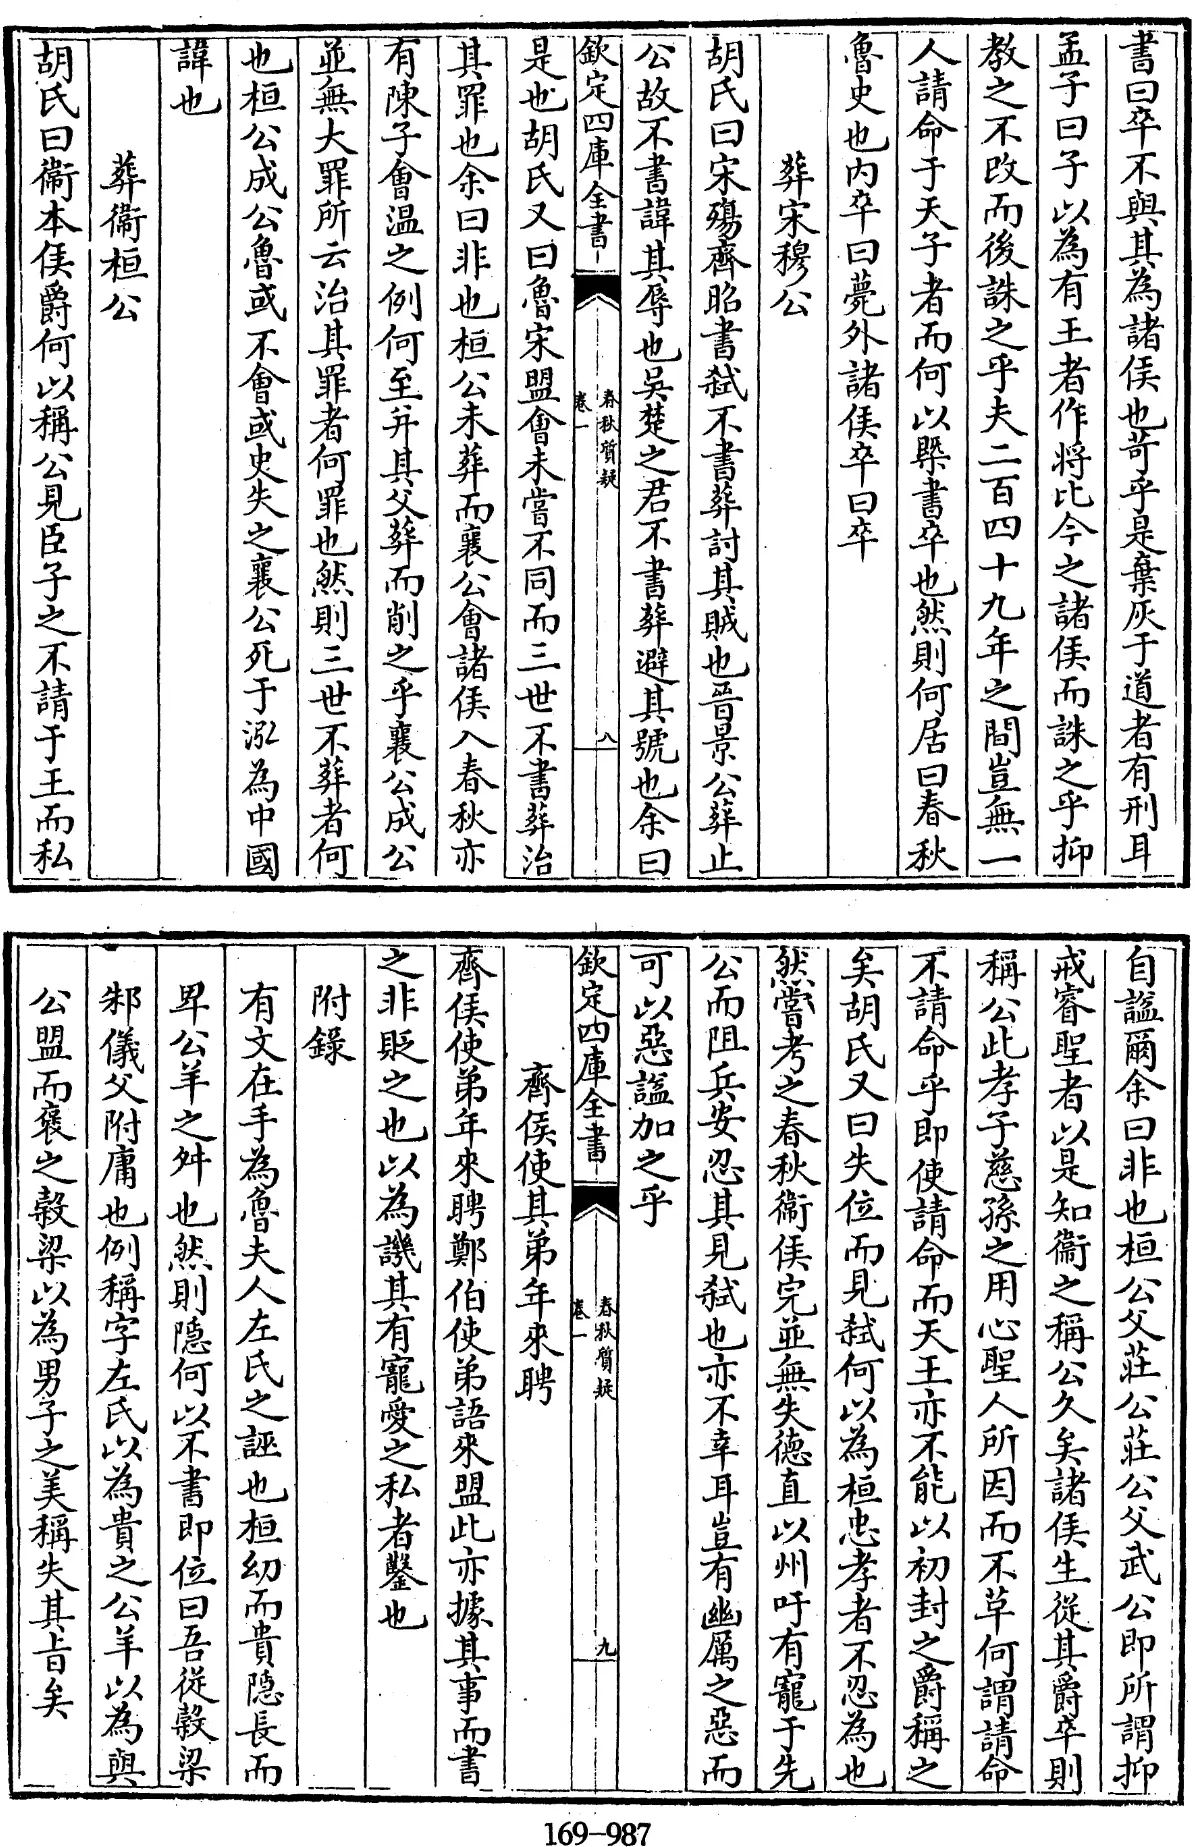 書曰卒不與其為諸侯也苛乎是棄灰于道者有刑耳
孟子曰子以為有王者作將比今之諸侯而誅之乎抑
教之不改而後誅之乎夫二百四十九年之間豈無一
人請命于天子者而何以槩書卒也然則何居曰春秋
魯史也內卒曰薨外諸侯卒曰卒
葬宋穆公
胡氏曰宋殤齊昭書弒不書葬討其賊也晉景公葬止
公故不書諱其辱也吳楚之君不書葬避其號也余曰
欽定四庫全書
春秋質疑
卷一
八
是也胡氏又曰魯宋盟會未嘗不同而三世不書葬治
其罪也余曰非也桓公未葬而襄公會諸侯入春秋亦
有陳子會溫之例何至并其父葬而削之乎襄公成公
並無大罪所云治其罪者何罪也然則三世不葬者何
也桓公成公魯或不會或史失之襄公死于泓為中國
諱也
葬衞桓公
胡氏曰衞本侯爵何以稱公見臣子之不請于王而私
自諡爾余曰非也桓公父莊公莊公父武公即所謂抑
戒睿聖者以是知衞之稱公久矣諸侯生從其爵卒則
稱公此孝子慈孫之用心聖人所因而不革何謂請命
不請命乎即使請命而天王亦不能以初封之爵稱之
矣胡氏又曰失位而見弒何以為桓忠孝者不忍為也
然嘗考之春秋衞侯完並無失德直以州吁有寵于先
公而阻兵安忍其見弒也亦不幸耳豈有幽厲之惡而
可以惡諡加之乎
欽定四庫全書
春秋質疑
卷一
九
齊侯使其弟年來聘
齊侯使弟年來聘鄭伯使弟語來盟此亦據其事而書
之非貶之也以為譏其有寵愛之私者鑿也
附錄
有文在手為魯夫人左氏之誣也桓幼而貴隱長而
卑公羊之舛也然則隱何以不書即位曰吾從穀梁
邾儀父附庸也例稱字左氏以為貴之公羊以為與
公盟而褒之穀梁以為男子之美稱失其旨矣
169-987